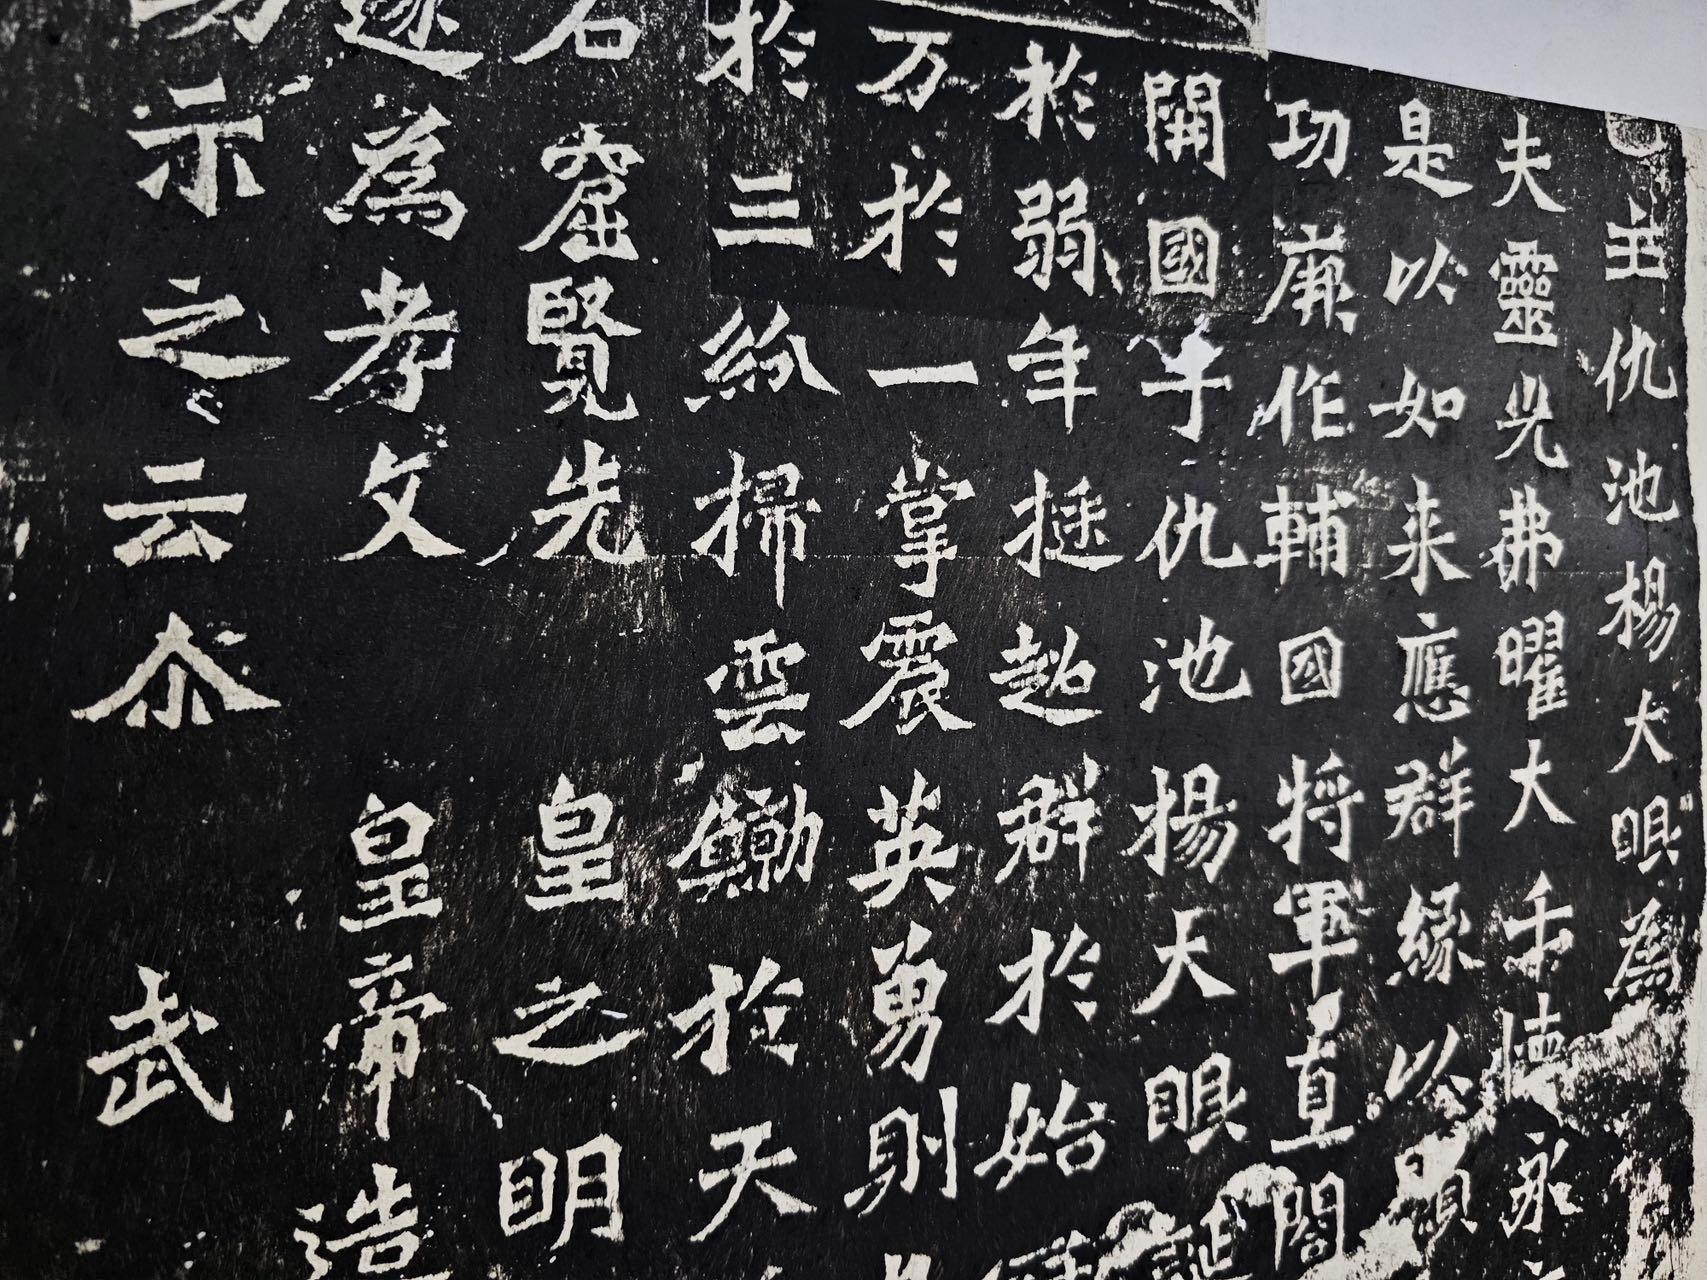 邑主仇池楊大眼為
夫靈光弗曜大千懷永
是以如来應群緣以顯
功厥作輔國將軍直閤
開國子仇池楊大眼誕
於弱年挺超群於始
万於一掌震英勇則
於三紛掃雲鯨於天
石窟覽先皇之明
遂為孝文皇帝造
示之云尒武